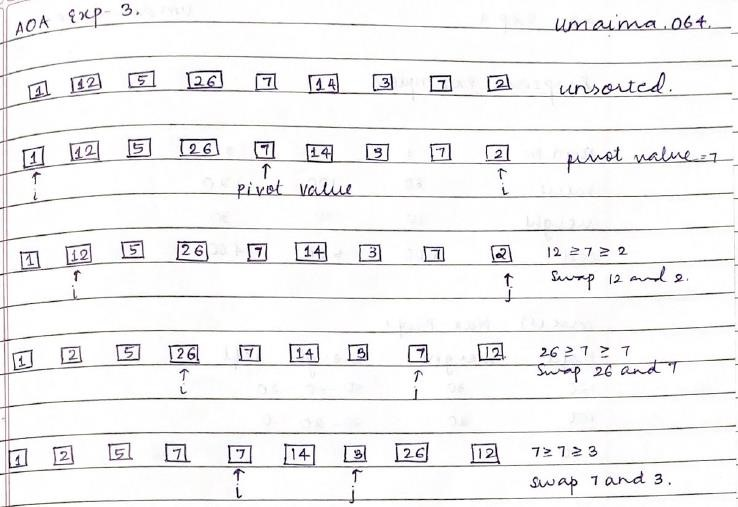 AOA Exp- 3. Umaima. 064.
1 12 5 26 7 14 3 7 2 unsorted.
1 12 5 26 7 14 3 7 2 pivot value = 7
i pivot value i
1 12 5 26 7 14 3 7 2 12 ≥ 7 ≥ 2
i j Swap 12 and 2.
1 2 5 26 7 14 3 7 12 26 ≥ 7 ≥ 7
i j Swap 26 and 7
1 2 5 7 7 14 3 26 12 7 ≥ 7 ≥ 3
i j swap 7 and 3.